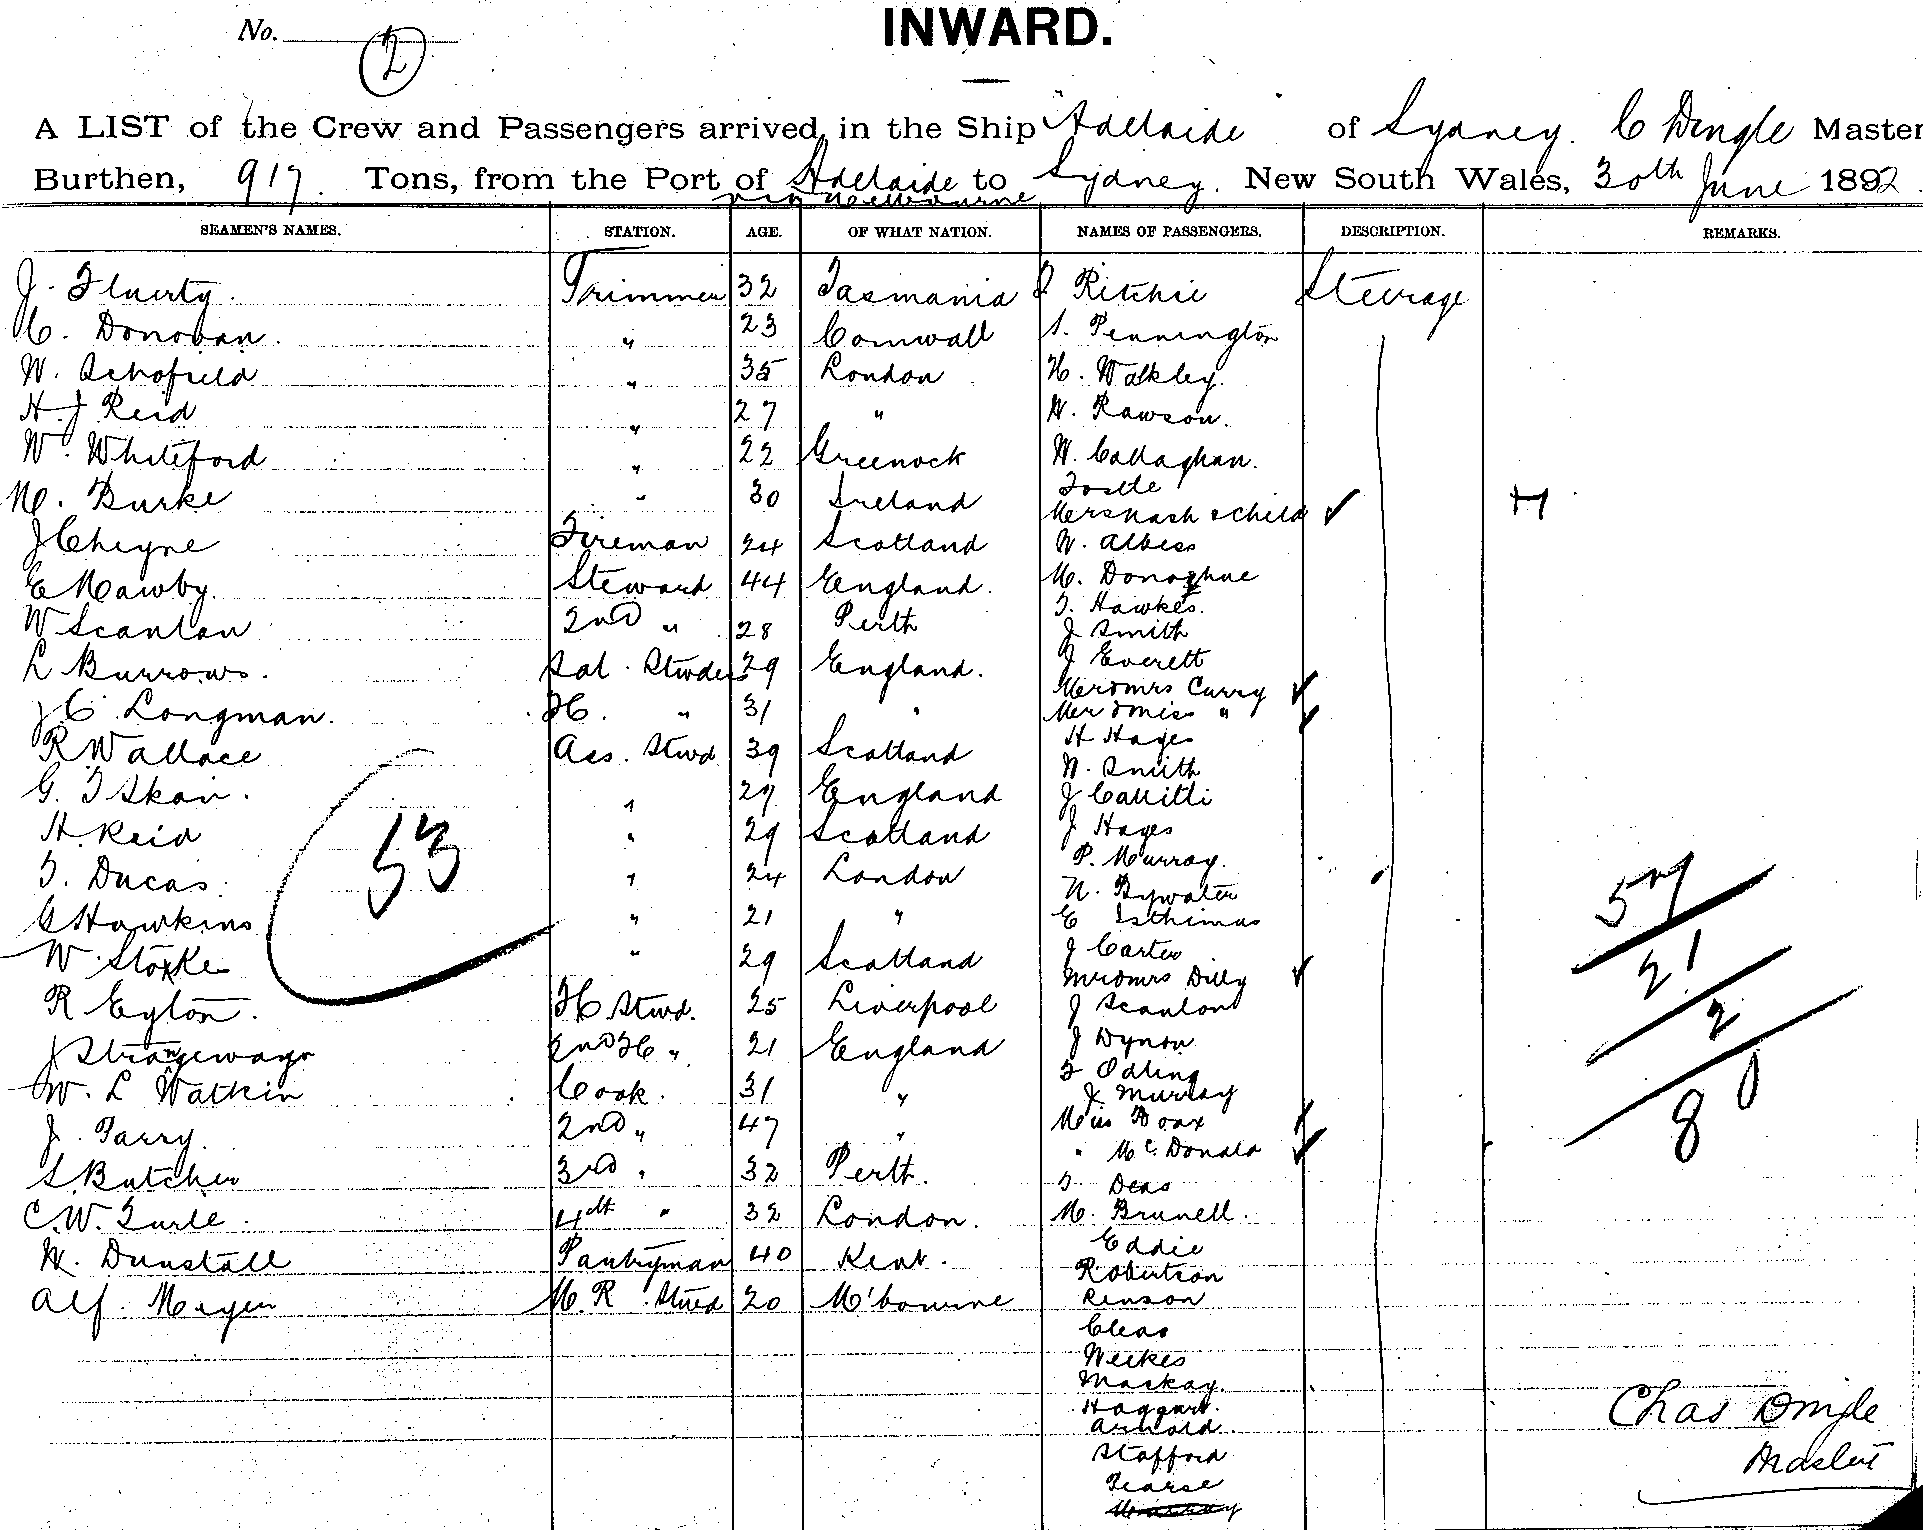 No. 2
INWARD.
A LIST of the Crew and Passengers arrived in the Ship "Adelaide of Sydney. C Dingle Master
Burthen, 917. Tons, from the Port of Adelaide to Sydney. New South Wales, 30th June 1892
via Melbourne
SEAMEN'S NAMES. STATION. AGE. OF WHAT NATION. NAMES OF PASSENGERS. DESCRIPTION. REMARKS.
J. Fluerty. Trimmer 32 Tasmania J Ritchie Steerage
C. Donovan. " 23 Cornwall S. Pennington
W. Schofield " 35 London H. Walkley.
H J Reid " 27 " W. Rawson.
W. Whiteford " 22 Greenock W. Callaghan.
M. Burke " 30 Ireland
Mrs Nash & Child
J Cheyne Fireman 24 Scotland
E Mawby. Steward 44 England. M. Donoghue
T. Hawkes.
W Scanlan 2nd " 28 Perth J Smith
L Burrows. Sal. Stwdes 29 England. J Everett
Mr & Mrs Curry
J C Longman. FC. " 31 " Mr & Miss "
R Wallace Ass. Stwd 39 Scotland H Hayes
W. Smith
G. T Skan. " 29 England J
H. Reid " 29 Scotland J Hayes
P. Murray.
T. Ducas. " 24 London W. Bywater
G Hawkins " 21 " E Isthimus
W. Stokke " 29 Scotland J Carter
Mr & Mrs Dilly
R Eyton. FC Stwd. 25 Liverpool J Scanlon
J Strangeways 2nd FC " 21 England J Dynon
F Odling
W. L Watkin Cook. 31 " J. Murray
J. Parry. 2nd " 47 " Miss Doax
" McDonald
S. Butcher 3rd " 32 Perth. T. Deas
C. W. Turle. 4th " 32 London. M. Brunell.
W. Dunstall Pantryman 40 Kent. Eddie
Robertson
Alf. Meyer M. R. Stwd 20 M'bourne Renson
Cleas
Weekes
Mackay.
Haggart.
Arnold.
Stafford
Pearse
53
57
21
2
80
Chas Dingle
Master